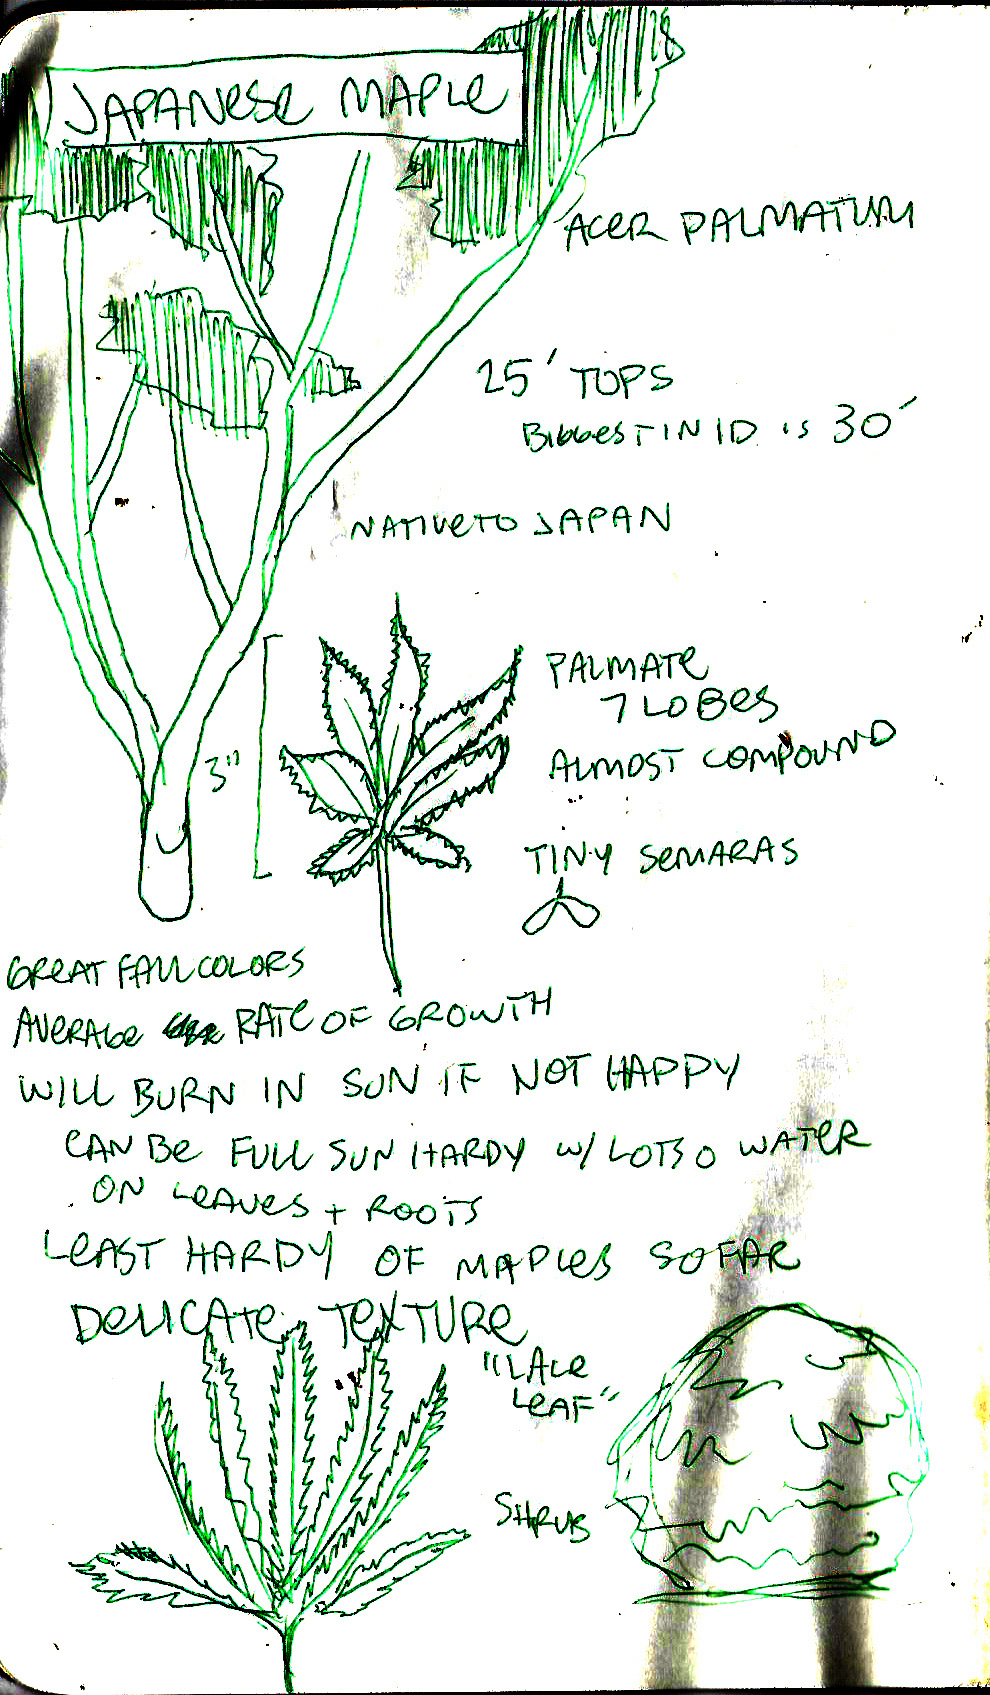 JAPANESE MAPLE
ACER PALMATUM
25' TOPS
BIGGEST IN ID IS 30'
NATIVE TO JAPAN
PALMATE
7 LOBES
ALMOST COMPOUND
3"
TINY SEMARAS
GREAT FALL COLORS
AVERAGE RATE OF GROWTH
WILL BURN IN SUN IF NOT HAPPY
CAN BE FULL SUN HARDY W/ LOTS O WATER
ON LEAVES + ROOTS
LEAST HARDY OF MAPLES SO FAR
DELICATE TEXTURE
"LACE
LEAF"
SHRUB